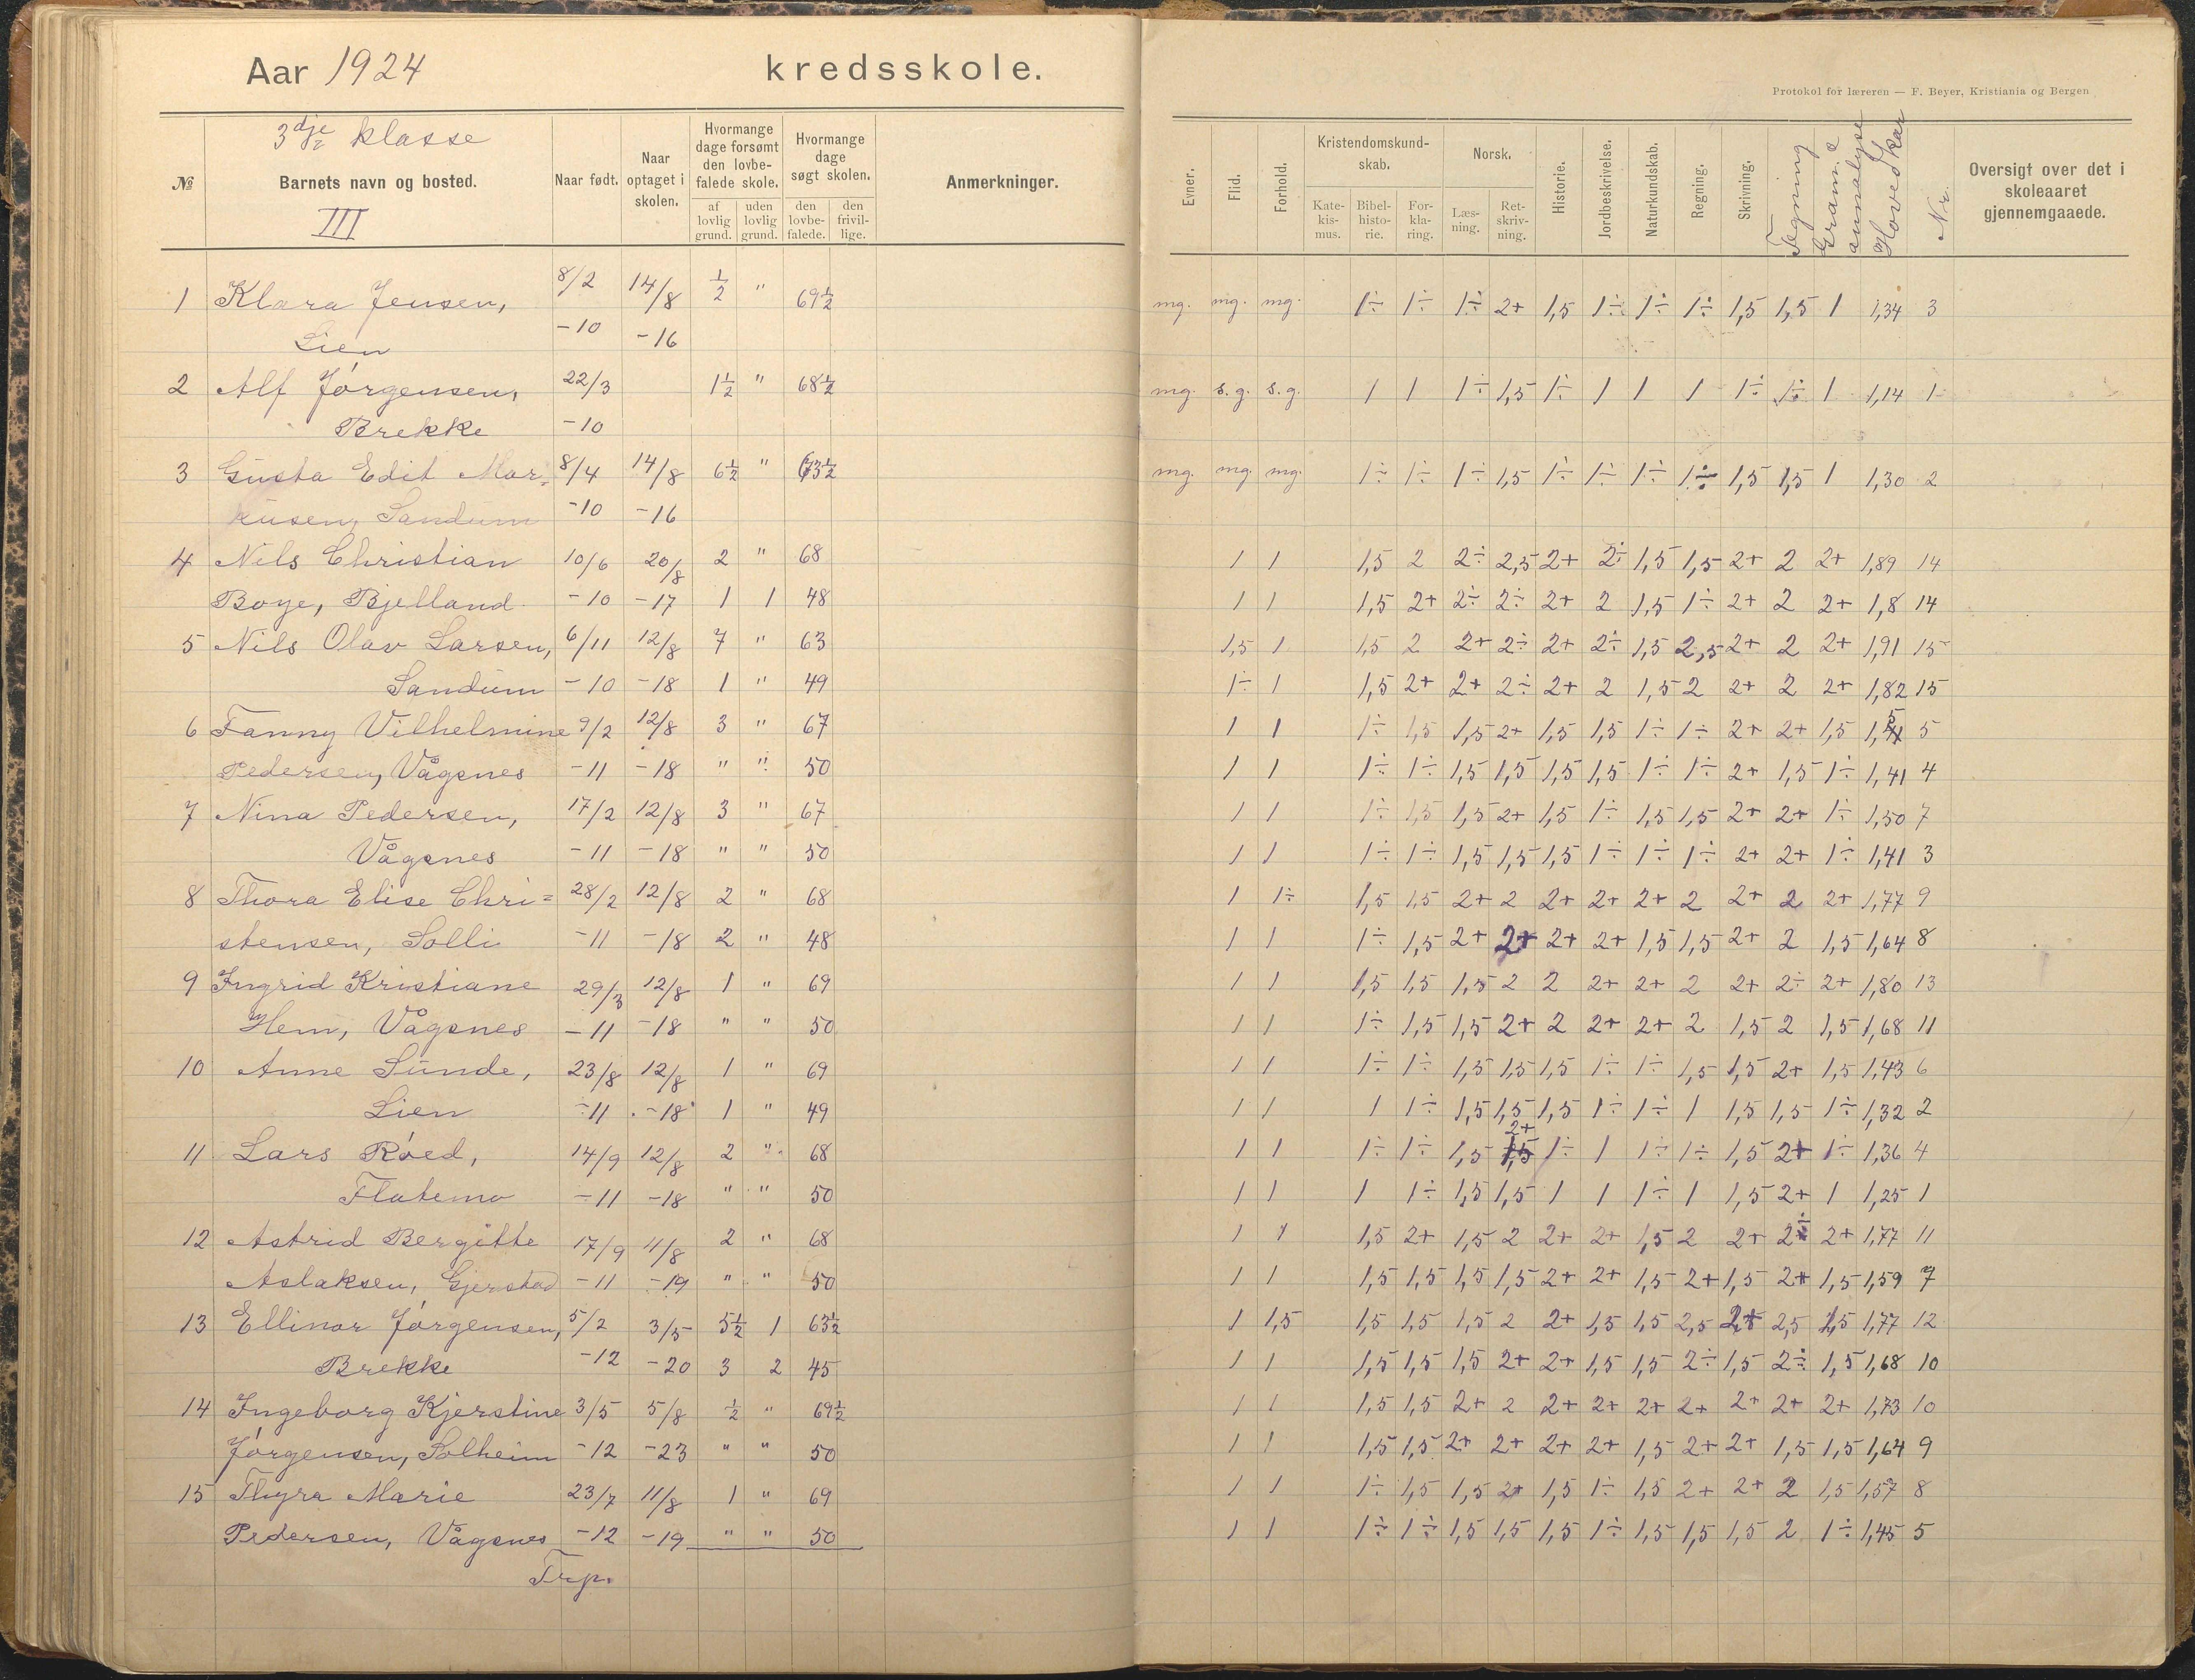 Aar 1924 kredsskole.
Protokol for læreren — F. Beyer, Kristiania og Bergen
№ 3dje klasse Barnets navn og bosted. III Naar født. Naar optaget i skolen. Hvormange dage forsømt den lovbefalede skole. af lovlig grund. uden lovlig grund. Hvormange dage søgt skolen. den lovbefalede. den frivillige. Anmerkninger.
Evner. Flid. Forhold. Kristendomskundskab. Katekismus. Bibelhistorie. Forklaring. Norsk. Læsning. Retskrivning. Historie. Jordbeskrivelse. Naturkundskab. Regning. Skrivning. Tegning Gram. & annalyse Hovedkar Nr. Oversigt over det i skoleaaret gjennemgaaede.
1 Klara Jensen, 8/2 14/8 ½ " 69½ mg. mg. mg. 1÷ 1÷ 1÷ 2+ 1,5 1÷ 1÷ 1÷ 1,5 1,5 1 1,34 3
Lien -10 -16
2 Alf Jórgensen, 22/3 1½ " 68½ mg. s.g. s.g. 1 1 1÷ 1,5 1÷ 1 1 1 1÷ 1÷ 1 1,14 1
Brekke -10
3 Gusta Edit Mar= 8/4 14/8 6½ " 63½ mg. mg. mg. 1÷ 1÷ 1÷ 1,5 1÷ 1÷ 1÷ 1÷ 1,5 1,5 1 1,30 2
kusen, Sandum -10 -16
4 Nils Christian 10/6 20/8 2 " 68 1 1 1,5 2 2÷ 2,5 2+ 2÷ 1,5 1,5 2+ 2 2+ 1,89 14
Boye, Bjelland -10 -17 1 1 48 1 1 1,5 2+ 2÷ 2÷ 2+ 2 1,5 1÷ 2+ 2 2+ 1,8 14
5 Nils Olav Larsen, 6/11 12/8 7 " 63 1,5 1 1,5 2 2+ 2÷ 2+ 2÷ 1,5 2,5 2+ 2 2+ 1,91 15
Sandum -10 -18 1 " 49 1÷ 1 1,5 2+ 2+ 2÷ 2+ 2 1,5 2 2+ 2 2+ 1,82 15
6 Fanny Vilhelmine 9/2 12/8 3 " 67 1 1 1÷ 1,5 1,5 2+ 1,5 1,5 1÷ 1÷ 2+ 2+ 1,5 1,5 5
Pedersen, Vågsnes -11 -18 " " 50 1 1 1÷ 1÷ 1,5 1,5 1,5 1,5 1÷ 1÷ 2+ 1,5 1÷ 1,41 4
7 Nina Pedersen, 17/2 12/8 3 " 67 1 1 1÷ 1,5 1,5 2+ 1,5 1÷ 1,5 1,5 2+ 2+ 1÷ 1,50 7
Vågsnes -11 -18 " " 50 1 1 1÷ 1÷ 1,5 1,5 1,5 1÷ 1÷ 1÷ 2+ 2+ 1÷ 1,41 3
8 Thora Elise Chri= 28/2 12/8 2 " 68 1 1÷ 1,5 1,5 2+ 2 2+ 2+ 2+ 2 2+ 2 2+ 1,77 9
stensen, Solli -11 -18 2 " 48 1 1 1÷ 1,5 2+ 2+ 2+ 2+ 1,5 1,5 2+ 2 1,5 1,64 8
9 Ingrid Kristiane 29/3 12/8 1 " 69 1 1 1,5 1,5 1,5 2 2 2+ 2+ 2 2+ 2÷ 2+ 1,80 13
Hem, Vågsnes -11 -18 " " 50 1 1 1÷ 1,5 1,5 2+ 2 2+ 2+ 2 1,5 2 1,5 1,68 11
10 Anne Sunde, 23/8 12/8 1 " 69 1 1 1÷ 1÷ 1,5 1,5 1,5 1÷ 1÷ 1,5 1,5 2+ 1,5 1,43 6
Lien -11 -18 1 " 49 1 1 1 1÷ 1,5 1,5 1,5 1÷ 1÷ 1 1,5 1,5 1÷ 1,32 2
11 Lars Róed, 14/9 12/8 2 " 68 1 1 1÷ 1÷ 1,5 2+ 1÷ 1 1÷ 1÷ 1,5 2+ 1÷ 1,36 4
Flatemo -11 -18 " " 50 1 1 1 1÷ 1,5 1,5 1 1 1÷ 1 1,5 2+ 1 1,25 1
12 Astrid Bergitte 17/9 11/8 2 " 68 1 1 1,5 2+ 1,5 2 2+ 2+ 1,5 2 2+ 2÷ 2+ 1,77 11
Aslaksen, Gjerstad -11 -19 " " 50 1 1 1,5 1,5 1,5 1,5 2+ 2+ 1,5 2+ 1,5 2+ 1,5 1,59 7
13 Ellinor Jórgensen, 5/2 3/5 5½ 1 63½ 1 1,5 1,5 1,5 1,5 2 2+ 1,5 1,5 2,5 2+ 2,5 1,5 1,77 12
Brekke -12 -20 3 2 45 1 1 1,5 1,5 1,5 2+ 2+ 1,5 1,5 2÷ 1,5 2÷ 1,5 1,68 10
14 Ingeborg Kjerstine 3/5 5/8 ½ " 69½ 1 1 1,5 1,5 2+ 2 2+ 2+ 2+ 2+ 2+ 2+ 2+ 1,73 10
Jórgensen, Solheim -12 -23 " " 50 1 1 1,5 1,5 2+ 2+ 2+ 2+ 1,5 2+ 2+ 1,5 1,5 1,64 9
15 Thyra Marie 23/7 11/8 1 " 69 1 1 1÷ 1,5 1,5 2+ 1,5 1÷ 1,5 2+ 2+ 2 1,5 1,57 8
Pedersen, Vågsnes -12 -19 " " 50 1 1 1÷ 1÷ 1,5 1,5 1,5 1÷ 1,5 1,5 1,5 2 1÷ 1,45 5
Trp.